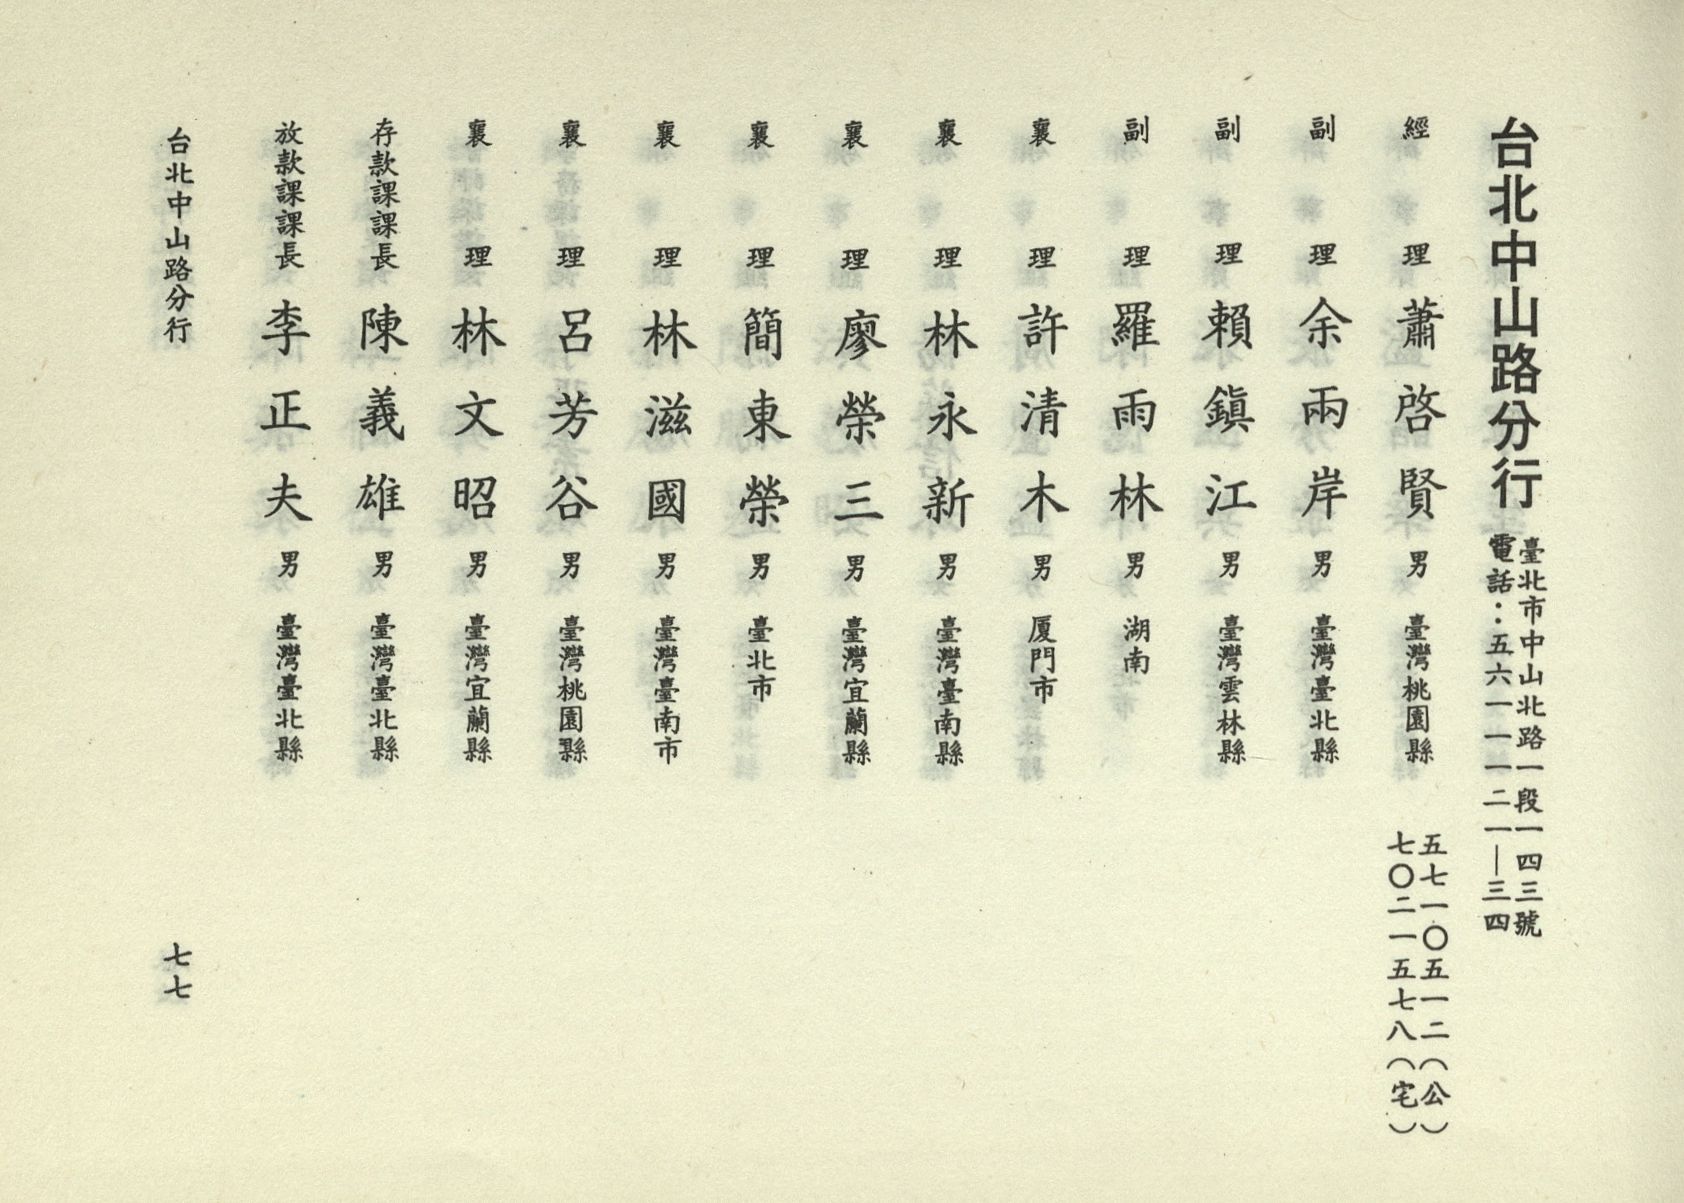 台北中山路分行
臺北市中山北路一段一四三號
電話：五六一一一二一—三四
經理 蕭啓賢 男 臺灣桃園縣 五七一〇五一二（公）
七〇二一五七八（宅）
副理 余兩岸 男 臺灣臺北縣
副理 賴鎮江 男 臺灣雲林縣
副理 羅雨林 男 湖南
襄理 許清木 男 厦門市
襄理 林永新 男 臺灣臺南縣
襄理 廖榮三 男 臺灣宜蘭縣
襄理 簡東榮 男 臺北市
襄理 林滋國 男 臺灣臺南市
襄理 呂芳谷 男 臺灣桃園縣
襄理 林文昭 男 臺灣宜蘭縣
存款課課長 陳義雄 男 臺灣臺北縣
放款課課長 李正夫 男 臺灣臺北縣
台北中山路分行
七七